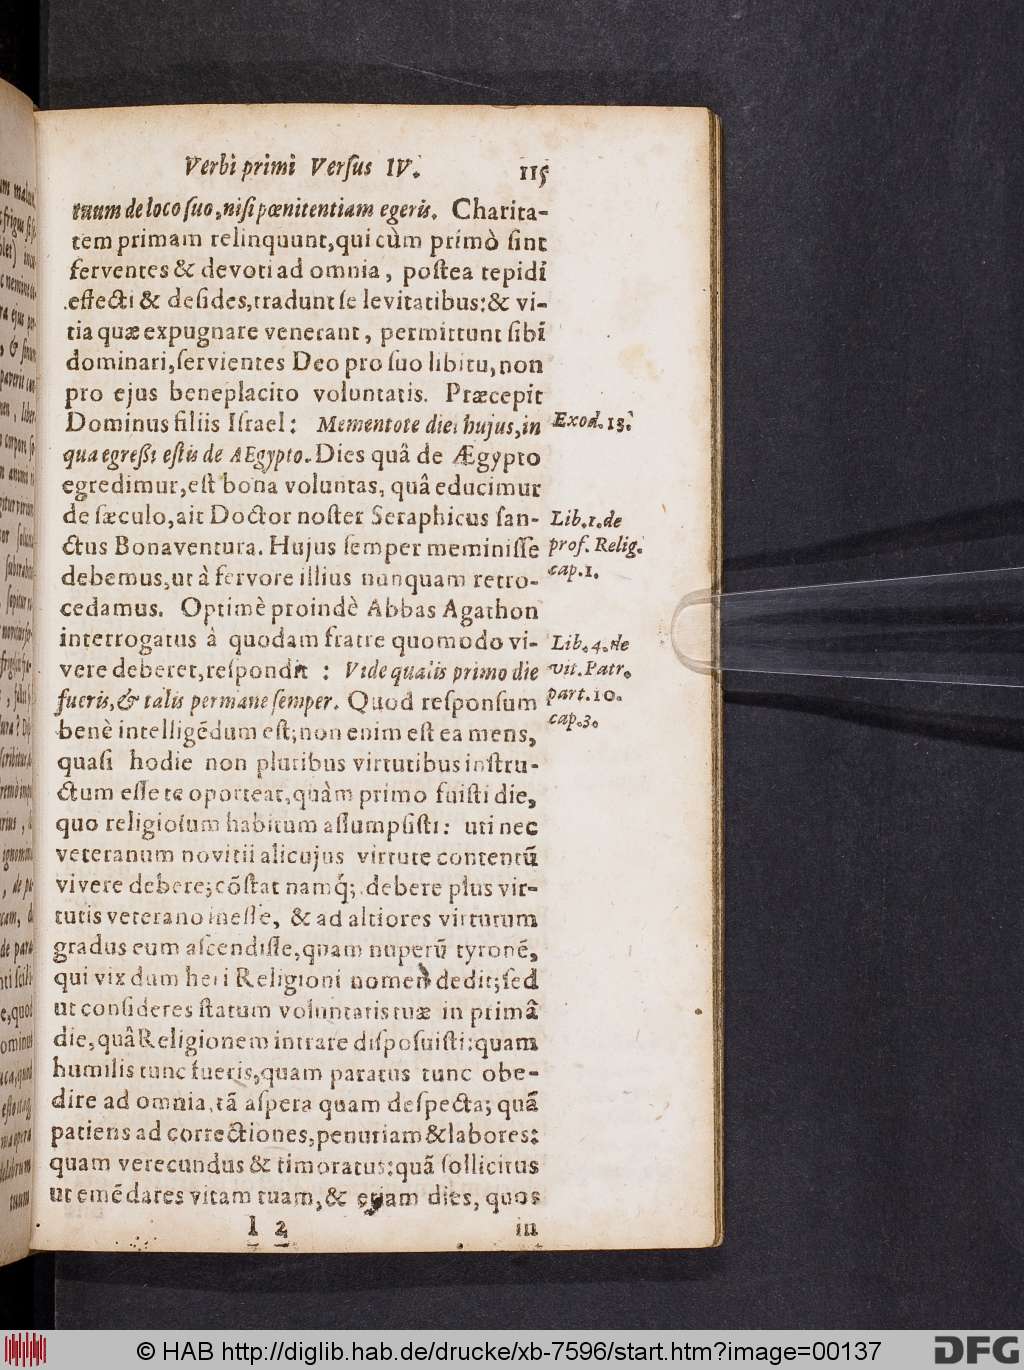 Verbi primi Versus IV. 115
tuum de loco suo, nisi pœnitentiam egeris. Charita-
tem primam relinquunt, qui cùm primò sint
ferventes & devoti ad omnia, postea tepidi
effecti & desides, tradunt se levitatibus: & vi-
tia quæ expugnare venerant, permittunt sibi
dominari, servientes Deo pro suo libitu, non
pro ejus beneplacito voluntatis. Præcepit
Dominus filiis Israel: Mementote diei hujus, in
qua egressi estis de AEgypto. Dies quâ de Ægypto
egredimur, est bona voluntas, quâ educimur
de sæculo, ait Doctor noster Seraphicus san-
ctus Bonaventura. Hujus semper meminisse
debemus, ut à fervore illius nunquam retro-
cedamus. Optimè proindè Abbas Agathon
interrogatus â quodam fratre quomodo vi-
vere deberet, respondit: Vide qualis primo die
fueris, & talis permane semper. Quod responsum
benè intelligẽdum est; non enim est ea mens,
quasi hodie non pluribus virtutibus instru-
ctum esse te oporteat, quàm primo fuisti die,
quo religiosum habitum assumpsisti: uti nec
veteranum novitii alicujus virtute contentũ
vivere debere; cõstat namq́; debere plus vir-
tutis veterano inesse, & ad altiores virtutum
gradus eum ascendisse, quam nuperũ tyronẽ,
qui vix dum heri Religioni nomen dedit; sed
ut consideres statum voluntatis tuæ in primâ
die, quâ Religionem intrare disposuisti: quam
humilis tunc fueris, quam paratus tunc obe-
dire ad omnia, tã aspera quam despecta; quã
patiens ad correctiones, penuriam & labores:
quam verecundus & timoratus: quã sollicitus
ut emẽdares vitam tuam, & etiam dies, quos
l 2 in
Exod. 13.
Lib. 1. de
prof. Relig.
cap. 1.
Lib. 4. de
vit. Patr.
part. 10.
cap. 3.
© HAB http://diglib.hab.de/drucke/xb-7596/start.htm?image=00137
DFG